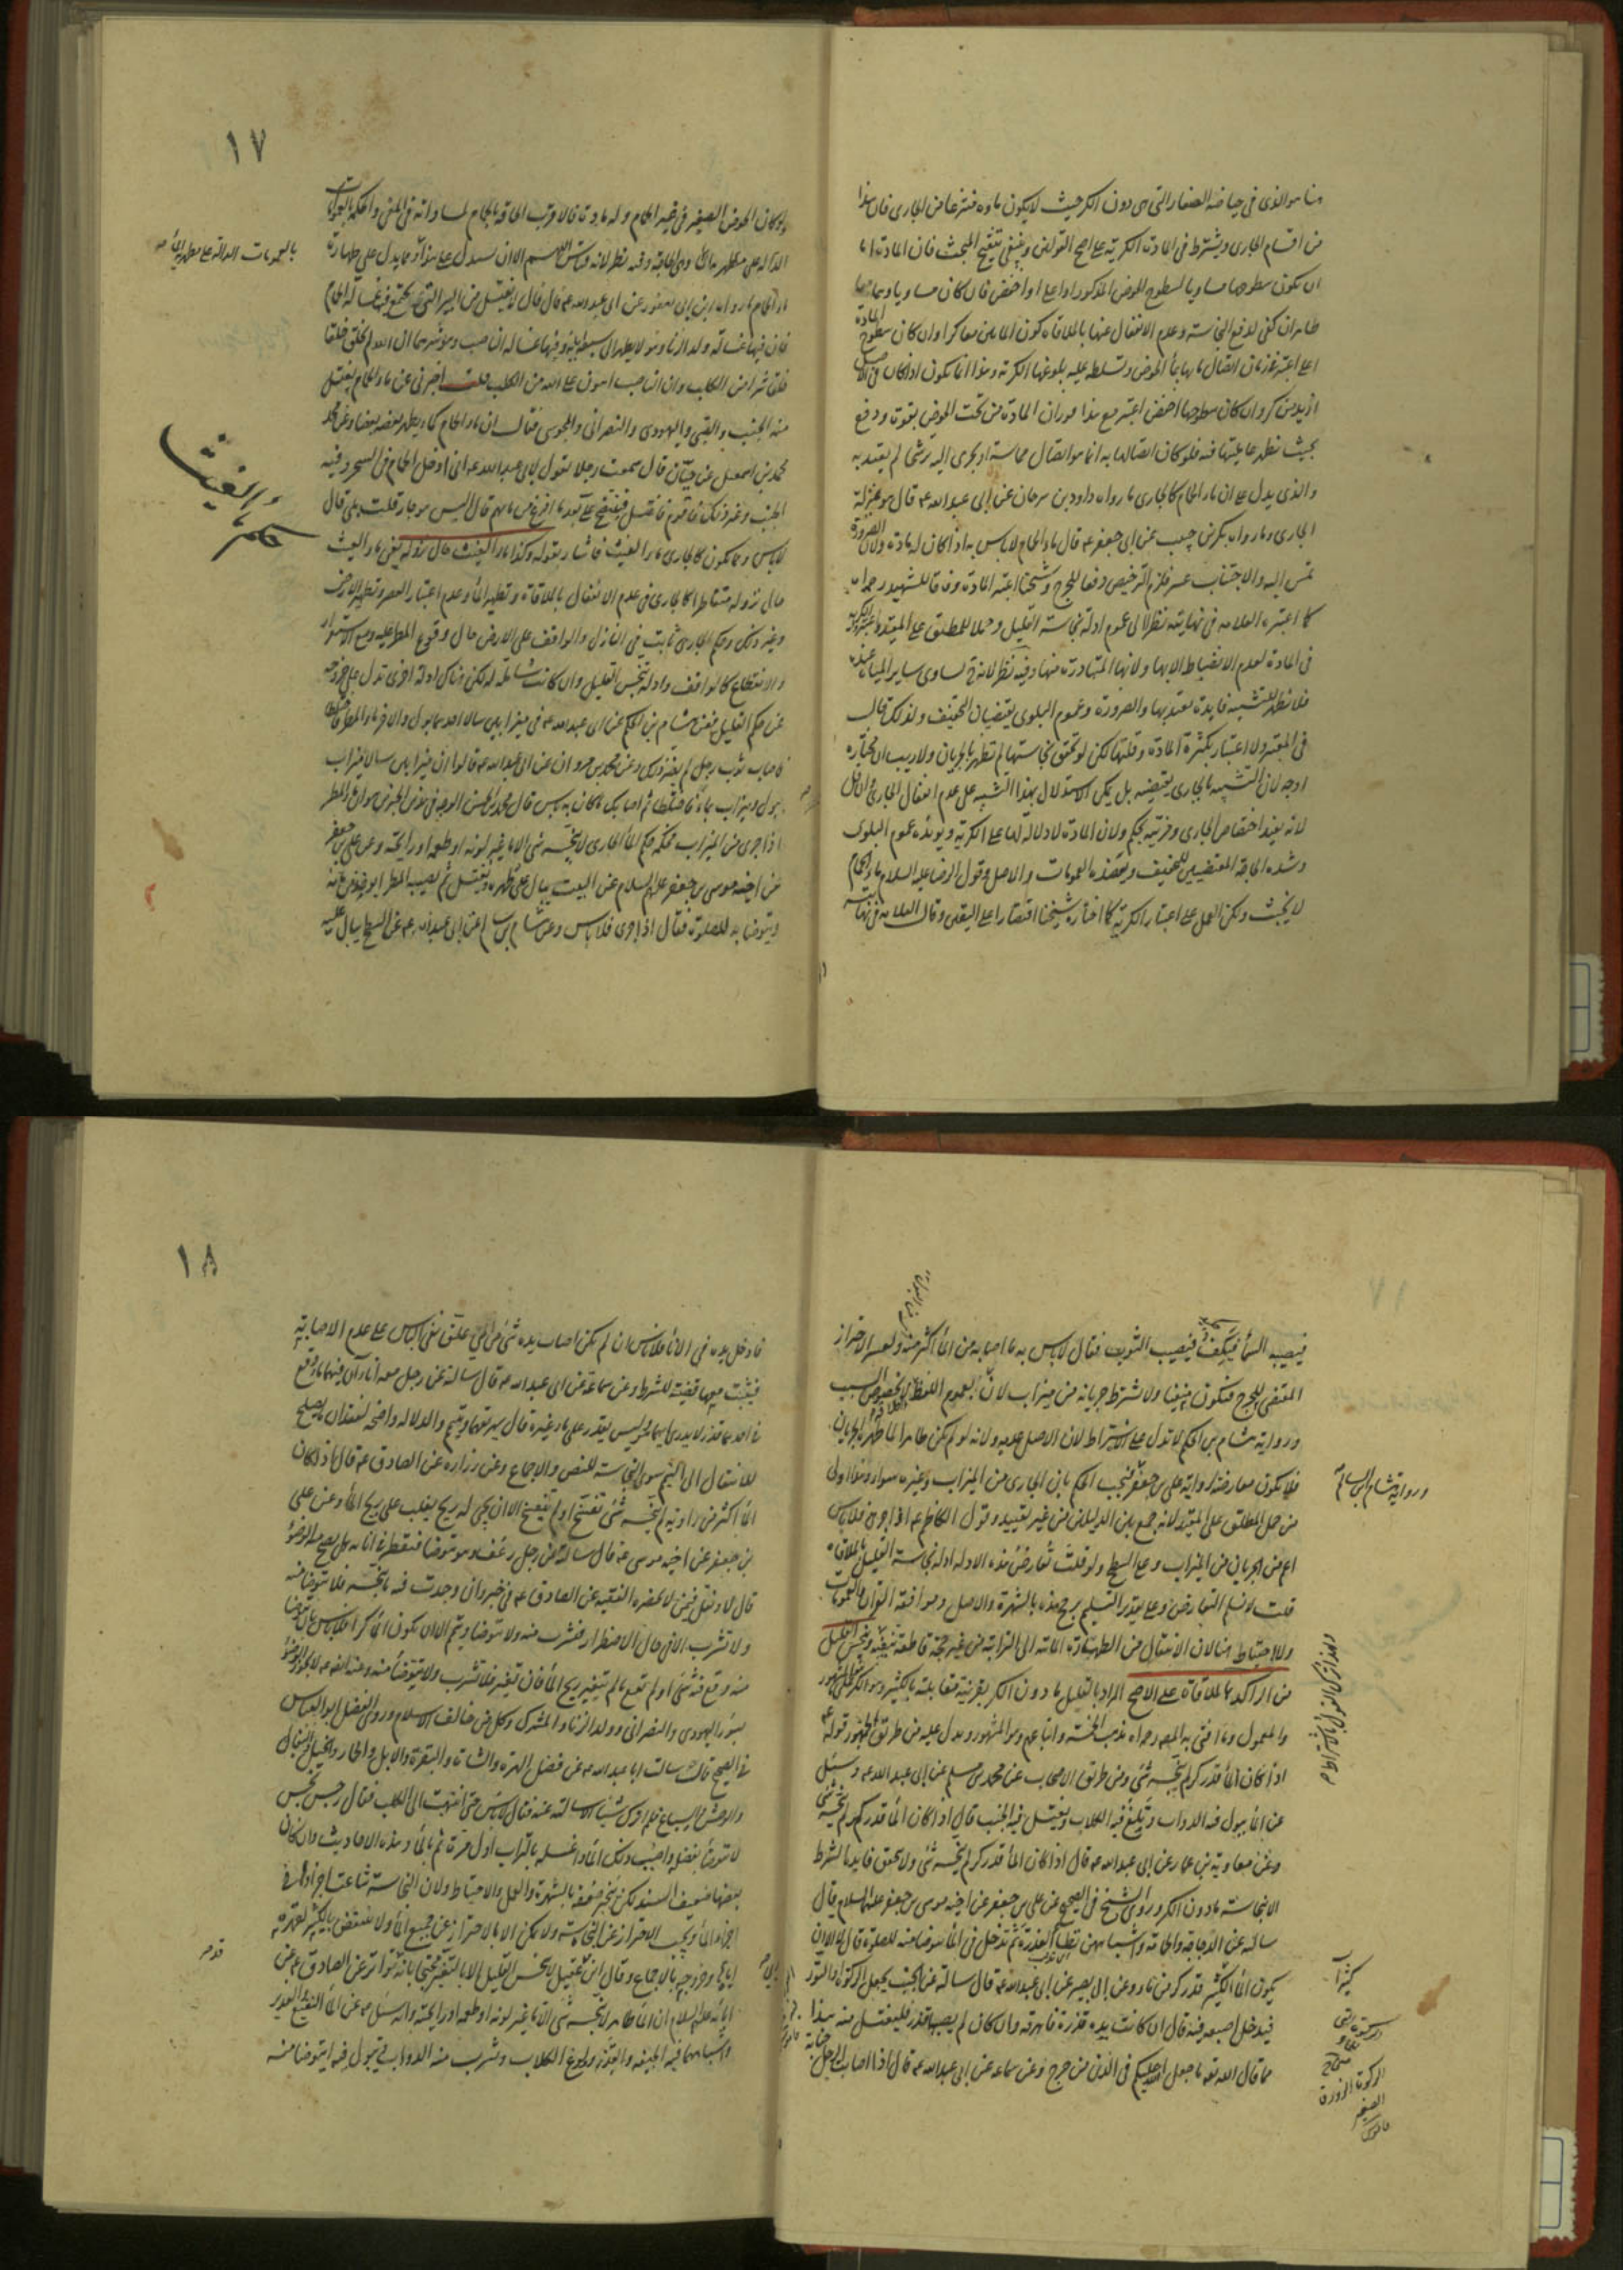 هنا هو الذى فى حياضه الصغار التى هى دون الكر حيث لا يكون ماؤه منتزعا من الجارى فان هذا
من اقسام الجارى ويشترط فى المادة الكرية على اصح القولين وينبغى تنقيح المبحث فان المادة اما
ان تكون سطوحها مساويا لسطوح الحوض المذكور او اعلى او اخفض فان كان مساويا
ظاهران كفى لدفع النجاسة وعدم الانفعال عنها بالملاقاة كون الماءين معا كرا وان كان سطوح المادة
اعلى اعتبر اتصال مائها بماء الحوض وتسلطه عليه بلوغها الكرية وهذا انما يكون اذا كان
ازيد من كر وان كان سطوحها اخفض اعتبر مع هذا فوران المادة من تحت الحوض بقوة ودفع
بحيث يظهر غلبتها فيه فلو كان اتصالها به انما هو اتصال مماسة او يجرى اليه ترشحا لم يعتد به
والذى يدل على ان ماء الحمام كالجارى ما رواه داود بن سرحان عن ابى عبد الله ع قال هو بمنزلة
الجارى وما رواه بكر بن حبيب عن ابى جعفر ع قال ماء الحمام لا باس به اذا كان له مادة ولان الضرورة
تمس اليه والاجتناب عسر فلزم الترخيص دفعا للحرج وشيخنا اعتبر المادة وفاقا للشهيد رحمه الله
كما اعتبره العلامه فى نهايته نظرا الى عموم ادلة نجاسة القليل وحملا للمطلق على المقيد
فى المادة لعدم الانضباط الا بها ولانها المتبادرة منها وفيه نظر لانه ح يساوى ساير المياه
فلا يظهر للتشبيه فايدة يعتد بها والضرورة وعموم البلوى يقتضيان التخفيف ولذلك قال
فى المعتبر ولا اعتبار بكثرة المادة وقلتها لكن لو تحقق نجاستها لم تطهر بالجريان ولا ريب ان مختاره
اوجه لان التشبيه بالجارى يقتضيه بل يمكن الاستدلال بهذا التشبيه على عدم انفعال الجارى وان قل
لانه يفيد اختصاص الجارى ومزيته بحكم ولان المادة لا دلالة لها على الكرية ويؤيده عموم البلوى
وشدة الحاجة المقتضيين للتخفيف ويعضده العمومات والاصل وقول الرضا عليه السلام ماء الحمام
لا يخبث ولكن العمل على اعتبار الكرية كما اختاره شيخنا اقتصارا على اليقين وقال العلامه فى نهايته
١٧
ولو كان الحوض الصغير فى غير الحمام وله مادة فالاقرب الحاقه بالحمام لمساواته فى المعنى
بالعمومات الدالة على مطهرية الماء
ماء الحمام ما رواه ابن ابى يعفور عن ابى عبد الله ع قال قال لا تغتسل من البير التى يجتمع فيها غسالة الحمام
فان فيها غسالة ولد الزنا وهو لا يطهر الى سبعة اباء وفيها غسالة الناصب وهو شرهما ان الله لم يخلق خلقا
خلق شرا من الكلاب وان الناصب اهون على الله من الكلب قلت اخبرنى عن ماء الحمام يغتسل
منه الجنب والصبى واليهودى والنصرانى والمجوسى فقال ان ماء الحمام كماء النهر يطهر بعضه بعضا وعن
محمد بن اسمعيل عن حنان قال سمعت رجلا يقول لابى عبد الله ع انى ادخل الحمام فى السحر وفيه
الجنب وغير ذلك فاقوم فاغتسل فينتضح على بعد ما افرغ من مائهم قال اليس هو جار قلت بلى قال
حكم ماء الغيث
لا باس ومما يكون كالجارى ماء الغيث فاشار بقوله وكذا ماء الغيث حال نزوله يعنى ماء الغيث
حال نزوله متقاطرا كالجارى فى عدم الانفعال بالملاقاة وتطهير الماء وعدم اعتبار العصر وتطهير الارض
وغير ذلك وحكم الجارى ثابت فى النازل والواقف على الارض حال وقوع المطر عليه ومع الاستقرار
والانقطاع كالواقف وادلة تنجس القليل وان كانت شاملة له لكن هناك ادلة اخرى تدل على خروجه
عن حكم القليل فعن هشام بن الحكم عن ابى عبد الله ع فى ميزابين سالا احدهما بول والاخر ماء المطر فاختلطا
فاصاب ثوب رجل لم يضره ذلك وعن محمد بن مروان عن ابى عبد الله ع قال لو ان ميزابين سالا ميزاب
ببول وميزاب بماء فاختلطا ثم اصابك ما كان به باس قال محمد بن الحسن الوجه فى هذين الخبرين هو ان ماء المطر
اذا جرى من الميزاب فحكمه حكم الماء الجارى لا ينجسه شى الا ما غير لونه او طعمه او رايحته وعن على بن جعفر
عن اخيه موسى بن جعفر عليهم السلام عن البيت يبال على ظهره ويغتسل ثم يصيبه المطر ايوخذ من مائه
ويتوضا به للصلوة فقال اذا جرى فلا باس وعن هشام بن سالم عن ابى عبد الله ع عن السطح يبال عليه
فيصيبه السماء فيكف فيصيب الثوب فقال لا باس به ما اصابه من الماء اكثر منه ولعسر الاحتراز
المقتضى للحرج فيكون منفيا ولا يشترط جريانه من ميزاب لان العموم اللفظ لا بخصوص السبب
ورواية هشام بن الحكم لا تدل على الاشتراط لان الاصل عدمه ولانه لو لم يكن طاهرا لما طهر بالجريان
ورواية هشام بن السالم
فلا يكون معارضة لرواية على بن جعفر فيجب الحكم بان الجارى من الميزاب وغيره سواء وهذا اولى
من حمل المطلق على المقيد لانه جمع بين الدليلين من غير تقييد وقول الكاظم ع اذا جرى فلا باس
اعم من الجريان من الميزاب وعلى السطح ولو قلت تعارض هذه الادلة ادلة نجاسة القليل بالملاقاة
قلت لا نسلم التعارض وعلى تقدير التسليم يرجح هذه بالشهرة والاصل وموافقة القران والعمومات
ولا احتياط هنا لان الانتقال من الطهارة المائية الى الترابية من غير حجة قاطعة وينجس القليل
من الراكد بالملاقاة على الاصح المراد بالقليل ما دون الكر بقرينة مقابلته بالكثير وهو الكر على المشهور
والمعمول وما افتى به المص رحمه الله مذهب الخمسة واتباعهم وهو المشهور ويدل عليه من طريق الجمهور قوله ع
اذا كان الماء قدر كر لم ينجسه شئ ومن طريق الاصحاب عن محمد بن مسلم عن ابى عبد الله ع وسئل
عن الماء يبول فيه الدواب وتلغ فيه الكلاب ويغتسل فيه الجنب قال اذا كان الماء قدر كر لم ينجسه شئ
وعن معاوية بن عمار عن ابى عبد الله ع قال اذا كان الماء قدر كر لم ينجسه شئ ولا يتحقق فايدة الشرط
الا بنجاسة ما دون الكر وروى الشيخ فى الصحيح عن على بن جعفر عن اخيه موسى بن جعفر عليهما السلام قال
سالته عن الدجاجة والحمامة واشباههن تطا العذرة ثم تدخل فى الماء يتوضا منه للصلوة قال لا الا ان
يكون الماء الكثير قدر كر من ماء وعن ابى بصير عن ابى عبد الله ع قال سالته عن الجنب يجعل الركوة او التور
فيدخل اصبعه فيه قال ان كانت يده قذرة فاهرقه وان كان لم يصبها قذر فليغتسل منه هذا
مما قال الله تعالى ما جعل عليكم فى الدين من حرج وعن سماعة عن ابى عبد الله ع قال اذا اصاب الرجل جنابة
١٨
فادخل يده فى الاناء فلا باس ان لم يكن اصاب يده شئ من المنى علق نفى الباس على عدم الاصابة
فيثبت معها قضية للشرط وعن سماعة عن ابى عبد الله ع قال سالته عن رجل معه اناءان فيهما ماء وقع
فى احدهما قذر لا يدرى ايهما هو وليس يقدر على ماء غيره قال يهريقهما ويتيمم والدلالة واضحة لفقدان ما يصلح
للانتقال الى التيمم سوى النجاسة للنص والاجماع وعن زرارة عن الصادق ع قال اذا كان
الماء اكثر من راوية لم ينجسه شئ تفسخ او لم يتفسخ الا ان يجئ له ريح يغلب على ريح الماء وعن على
بن جعفر عن اخيه موسى ع قال سالته عن رجل رعف وهو يتوضا فتقطر فى انائه هل يصح الوضوء
قال لا ونقل فيمن لا يحضره الفقيه عن الصادق ع فى خبر وان وجدت فيه ما ينجسه فلا تتوضا منه
ولا تشرب الا فى حال الاضطرار فتشرب منه ولا تتوضا وتيمم الا ان يكون الماء كرا فلا باس بان يتوضا
منه وقع فيه شئ او لم يقع ما لم يتغير ريح الماء فان تغير فلا تشرب ولا يتوضا منه وعنه ع لا يجوز الوضوء
بسؤر اليهودى والنصرانى وولد الزنا والمشرك وكل من خالف الاسلام وروى الفضل ابو العباس
فى الصحيح قال سالت ابا عبد الله ع عن فضل الهرة والشاة والبقرة والابل والحمار والخيل والبغال
والوحش والسباع فلم اترك شيئا الا سالته عنه فقال لا باس حتى انتهيت الى الكلب فقال رجس نجس
لا تتوضا بفضله واصبب ذلك الماء واغسله بالتراب اول مرة ثم بالماء وهذه الاحاديث وان كان
بعضها ضعيف السند لكن ينجبر ضعفه بالشهرة والعمل والاحتياط ولان النجاسة شاعت اجزاؤها فى
اجزاء الماء ويجب الاحتراز عن النجاسة ولا يمكن الا بالاحتراز عن جميع الماء ولا ينتقض بالكثير لقهره
اياها وخروجه بالاجماع وقال ابن عقيل لا ينجس القليل الا بالتغير محتجا بانه تواتر عن الصادق ع عن
ابائه عليهم السلام ان الماء طاهر لا ينجسه شى الا ما غير لونه او طعمه او رايحته وانه سئل ع عن الماء النقيع والغدير
واشباههما فيه الجيفة والقذر وولوغ الكلاب وشرب منه الدواب وتبول فيه ايتوضا منه